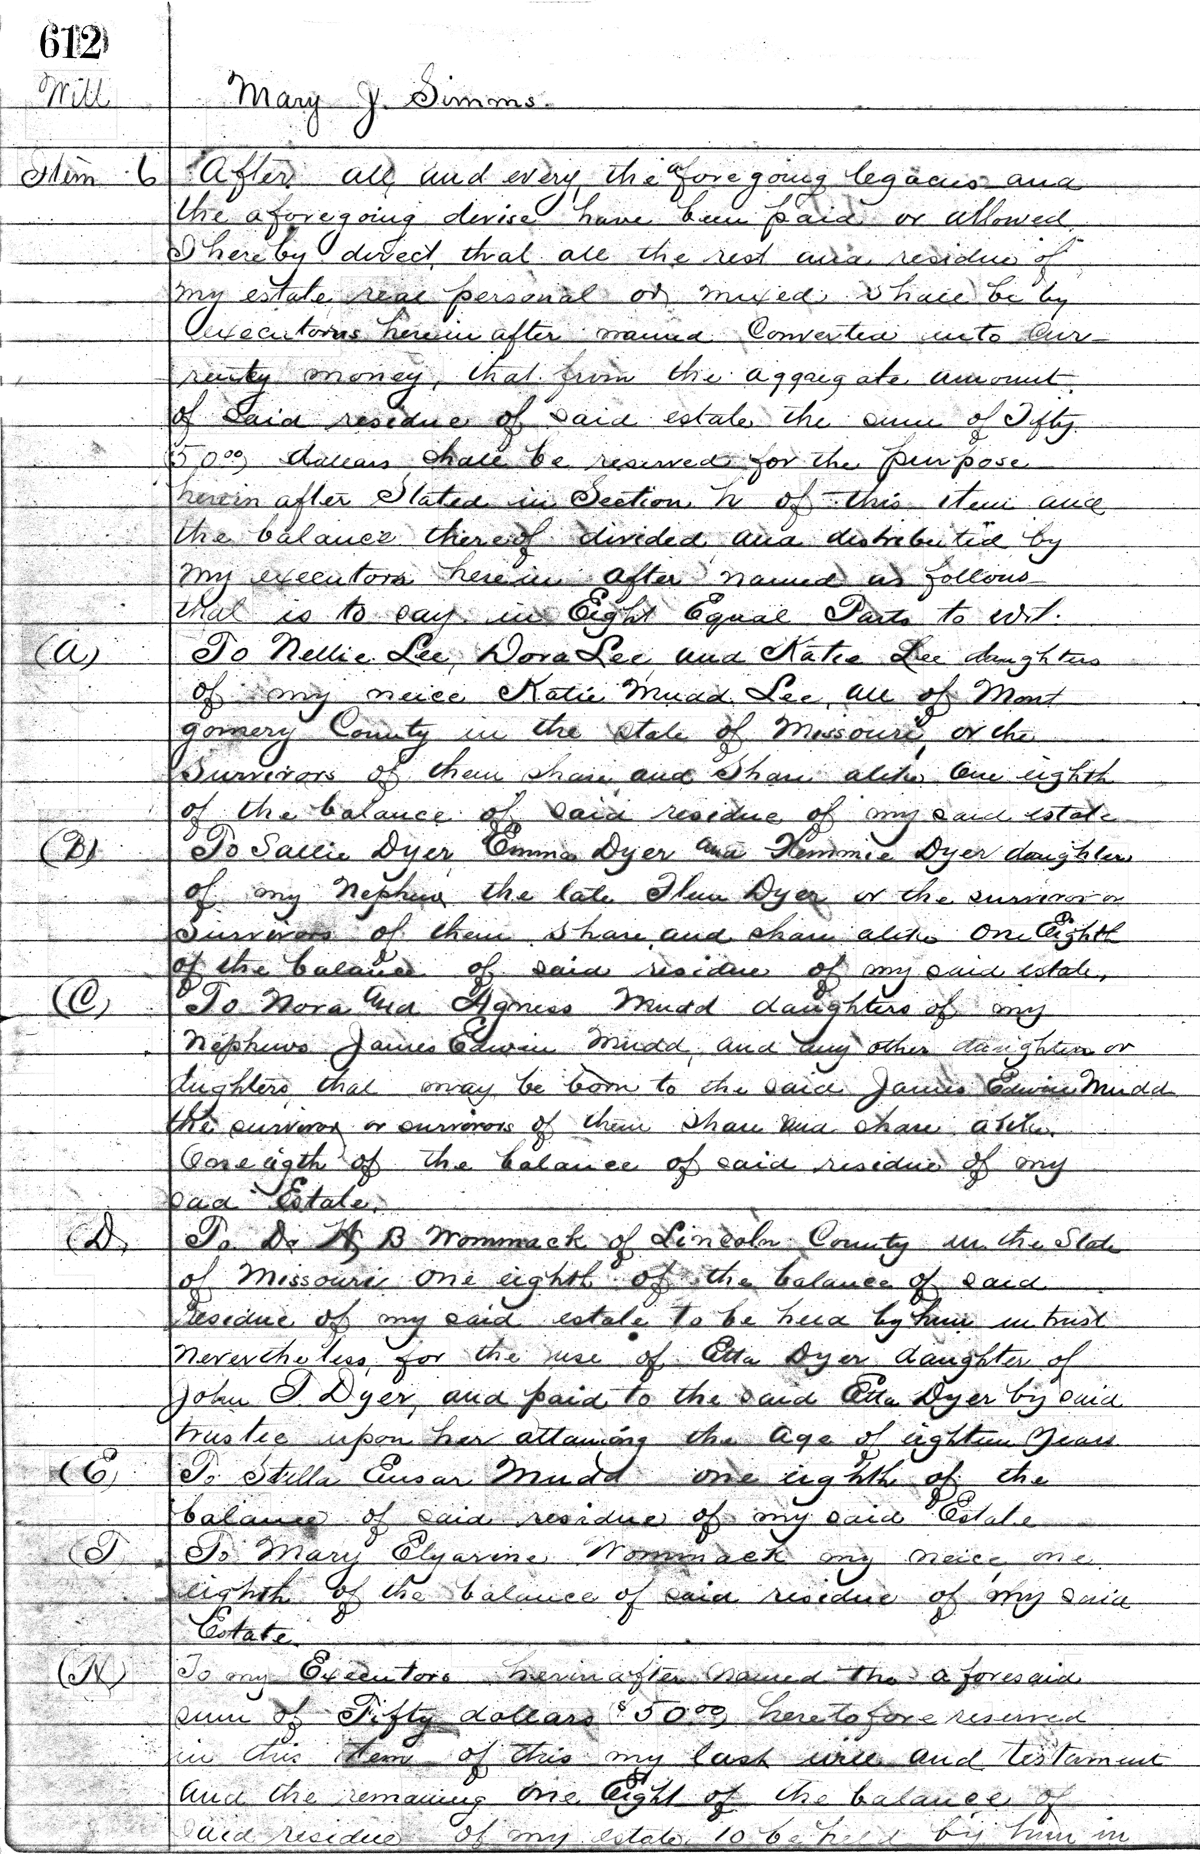 612
Will Mary J. Simms.
Item 6 After all and every the aforegoing legacies and
the aforegoing devise have been paid or allowed
I hereby direct that all the rest and residue of
my estate real personal or mixed shall be by
executors herein after named Converted into Cur-
rency money, that from the aggregate amount
of said residue of said estate the sum of Fifty
50.00 dollars shall be reserved for the purpose
herein after Stated in Section H of this item and
the balance thereof divided and distributed by
my executors herein after named as follows
that is to say in Eight Equal Parts to wit.
(A) To Nellie Lee, Dora Lee and Katie Lee daughters
of my neice Katie Mudd Lee, all of Mont
gomery County in the state of Missouri, or the
Survivors of them share and share alike One eighth
of the balance of said residue of my said estate
(B) To Sallie Dyer, Emma Dyer and Dyer daughters
of my Nephew the late Dyer or the survivor or
Survivors of them share and share alike One Eighth
of the balance of said residue of my said estate,
(C) To Nora and Agness Mudd daughters of my
Nephews James Edwin Mudd, and any other daughter or
dughters that may be born to the said James Edwin Mudd
the survivor or survivors of them share and share alike.
One eigth of the balance of said residue of my
said Estate.
(D) To Dr H, B Wommack of Lincoln County in the State
of Missouri One eighth of the balance of said
residue of my said estate to be held by him in trust
nevertheless, for the use of Etta Dyer daughter of
John T. Dyer, and paid to the said Etta Dyer by said
trustee upon her attaining the age of eighteen Years
(E) To Stella Mudd one eighth of the
balance of said residue of my said Estate
(F To Mary Elyarine Wommack my neice one
eighth of the balance of said residue of my said
Estate.
(H) To my Executors herinafter named the aforesaid
sum of Fifty dollars $50.00, heretofore reserved
in this item of this my last will and testament
and the remaining One Eight of the balance of
said residue of my estate to be held by him in